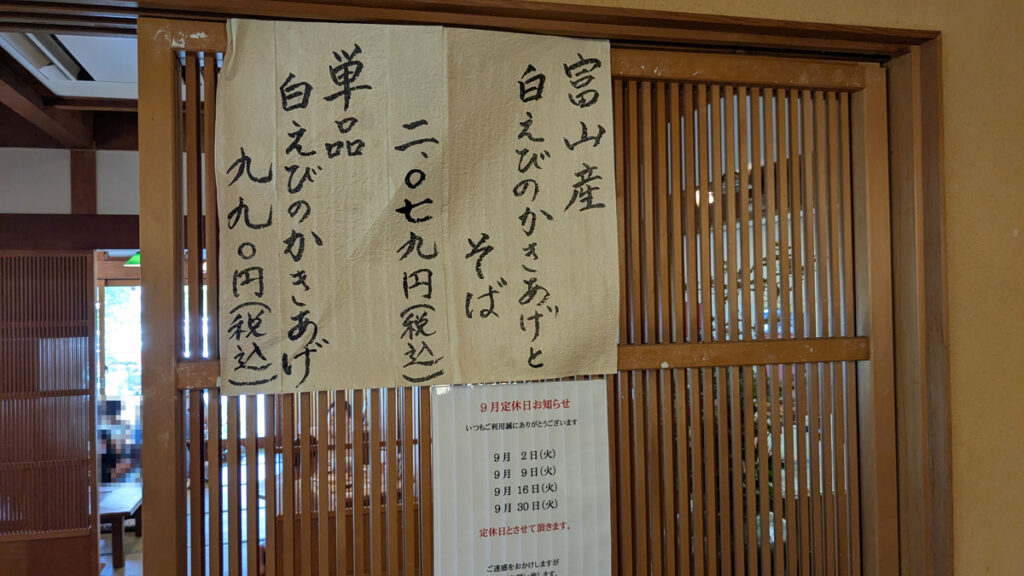 富山産
白えびのかきあげと
そば
二、〇七九円(税込)
単品
白えびのかきあげ
九九〇円(税込)
9月定休日お知らせ
いつもご利用誠にありがとうございます
9月 2日(火)
9月 9日(火)
9月 16日(火)
9月 30日(火)
定休日とさせて頂きます。
ご迷惑をおかけしますが